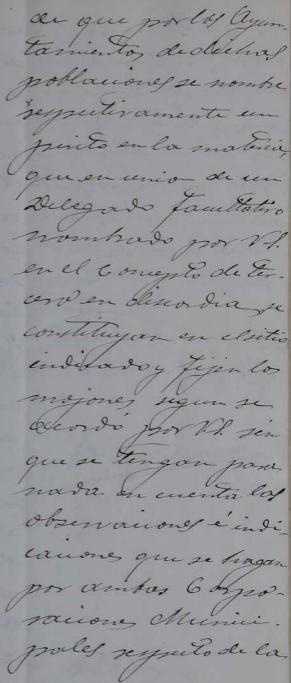 de que por los Ayun-
tamientos de dichas
poblaciones se nombre
respectivamente un
perito en la materia,
que en union de un
Delegado facultativo
nombrado por V.S.
en el Concepto de ter-
cero en discordia, se
constituyan en el sitio
indicado y fijen los
mojones segun se
acordó por V.S. sin
que se tengan para
nada en cuenta las
observaciones é indi-
caciones que se hagan
por ambas Corpo-
raciones Munici-
pales respecto de la